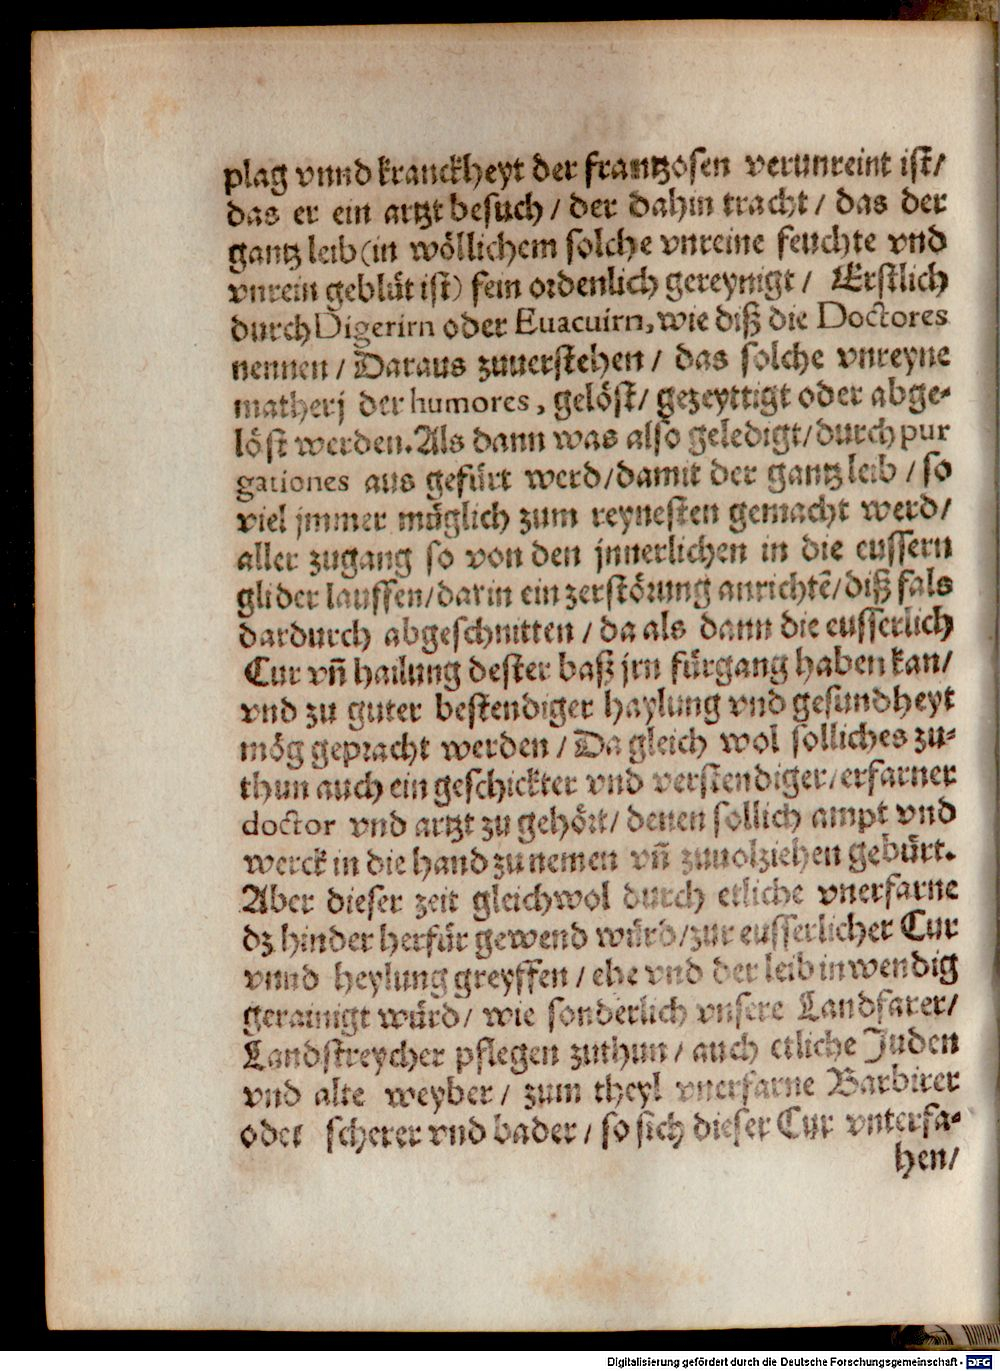 plag vnnd kranckheyt der frantzosen verunreint ist/
das er ein artzt besuch / der dahin tracht / das der
gantz leib (in wöllichem solche vnreine feuchte vnd
vnrein geblüt ist) fein ordenlich gereynigt / Erstlich
durch Digerirn oder Euacuirn, wie diß die Doctores
nennen / Daraus zuuerstehen / das solche vnreyne
matherj der humores, gelöst/ gezeyttigt oder abge-
löst werden. Als dann was also geledigt/durch pur
gationes aus gefürt werd/damit der gantz leib / so
viel jmmer müglich zum reynesten gemacht werd/
aller zugang so von den jnnerlichen in die eussern
glider lauffen/darin ein zerstörung anrichtẽ/diß fals
dardurch abgeschnitten / da als dann die eusserlich
Cur vñ hailung dester baß jrn fürgang haben kan/
vnd zu guter bestendiger haylung vnd gesundheyt
mög gepracht werden / Da gleich wol solliches zu-
thun auch ein geschickter vnd verstendiger/erfarner
doctor vnd artzt zu gehört/ denen sollich ampt vnd
werck in die hand zu nemen vñ zuuolziehen gebürt.
Aber dieser zeit gleichwol durch etliche vnerfarne
dz hinder herfür gewend würd/zur eusserlicher Cur
vnnd heylung greyffen / ehe vnd der leib inwendig
gerainigt würd/ wie sonderlich vnsere Landfarer/
Landstreycher pflegen zuthun / auch etliche Juden
vnd alte weyber / zum theyl vnerfarne Barbirer
oder scherer vnd bader / so sich dieser Cur vnterfa-
hen/
Digitalisierung gefördert durch die Deutsche Forschungsgemeinschaft - DFG